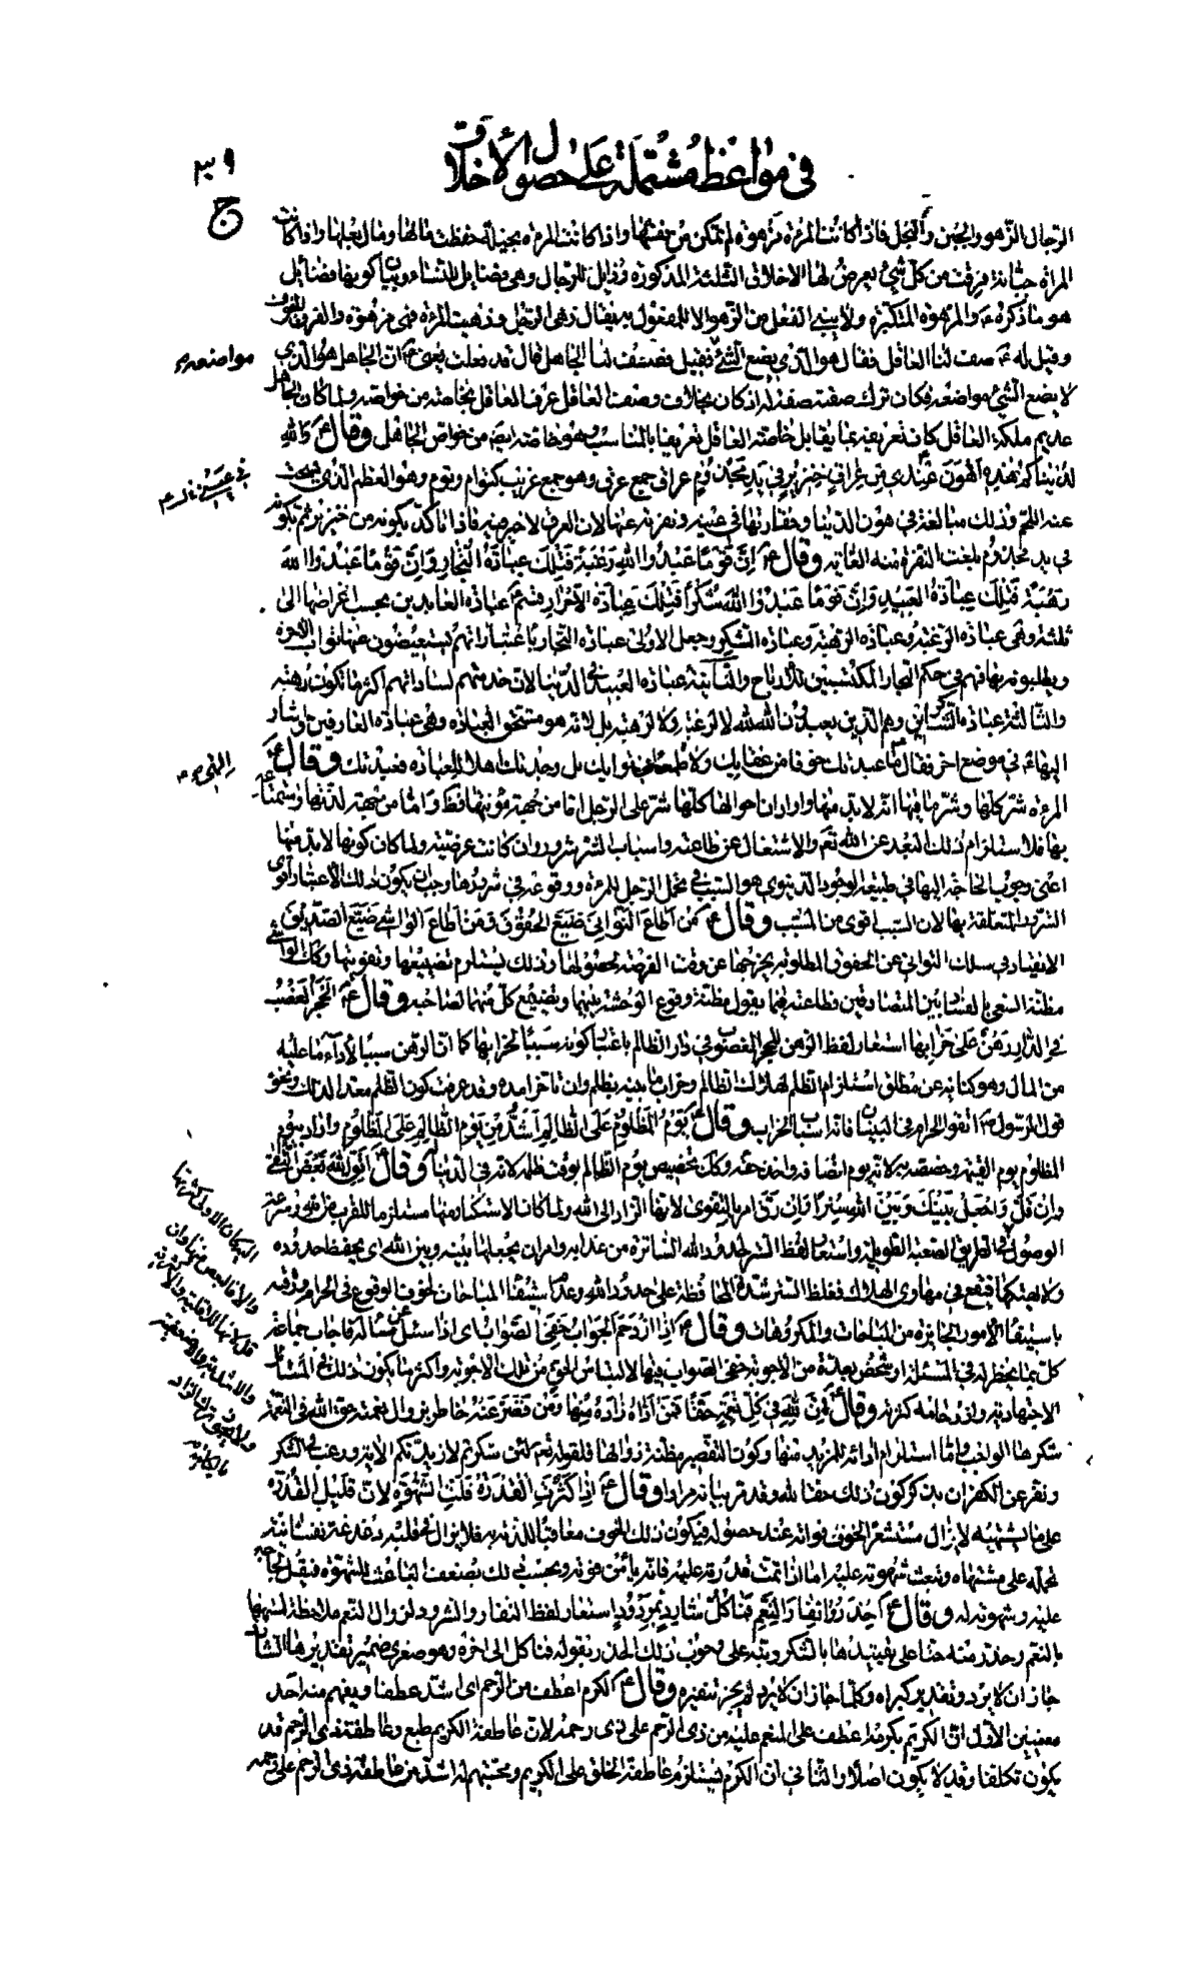 في مواعظ مشتملة على اصول الأخلاق
الرجال الزهو والجبن والبخل فاذا كانت المرءة مزهوة لم تمكن من نفسها واذا كانت المرءة بخيلة حفظت مالها ومال بعلها واذا كانت
المراة جبانة فرقت من كل شئ يعرض لها الاخلاق الثلثة المذكورة رذايل للرجال وهى فضايل للنساء وبيان كونها فضائل
هو ما ذكره ع والمزهوة المتكبرة ولا يبنى الفعل من الزهو الا للمفعول به يقال زهى الرجل وزهيت المرءة فهى مزهوة والفرق الخوف
وقيل له ع صف لنا العاقل فقال هو الذى يضع الشئ فقيل فصف لنا الجاهل قال قد فعلت يعنى ع ان الجاهل هو الذى
مواضعه
لا يضع الشئ مواضعه فكان ترك صفته صفة له اذ كان بخلاف وصف العاقل عرف العاقل بخاصة من خواصه ولما كان الجاهل
عديم ملكة العاقل كان تعريفه بما يقابل خاصة العاقل تعريفا بالمناسب وهو خاصة ايضا من خواص الجاهل وقال ع والله
لدنياكم هذه اهون عندى من عراق خنزير فى يد مجذوم عراق جمع عرق وهو جمع غريب كتوام وتوم وهو العظم الذى
فى عينى
عنه اللحم وذلك مبالغة فى هون الدنيا وحقارتها فى عينيه ونفرته عنها لان العرق لا خير فيه فاذا تاكد بكونه من خنزير ثم بكونه
فى يد مجذوم بلغت النفرة منه الغاية وقال ع ان قوما عبدوا الله رغبة فتلك عبادة التجار وان قوما عبدوا الله
رهبة فتلك عبادة العبيد وان قوما عبدوا الله شكرا فتلك عبادة الاحرار قسم ع عبادة العابدين بحسب اغراضها الى
ثلثة وهى عبادة الرغبة وعبادة الرهبة وعبادة الشكر وجعل الاولى عبادة التجار باعتبار انهم يستعيضون عنها ثواب الآخرة
ويطلبونه بها فهم فى حكم التجار المكتسبين للارباح والثانية عبادة العبيد فى الدنيا لان خدمتهم لساداتهم اكثر ما تكون رهبة
والثالثة عبادة الشاكرين وهم الذين يعبدون الله لله لا لرغبة ولا لرهبة بل لانه هو مستحق العبادة وهى عبادة العارفين واشار
اليها ع فى موضع اخر فقال ما عبدتك خوفا من عقابك ولا طمعا فى ثوابك بل وجدتك اهلا للعبادة فعبدتك وقال ع
المرءة شر كلها وشر ما فيها انه لابد منها واراد ان احوالها كلها شر على الرجل اما من جهة مؤنتها فظ واما من جهة لذتها واستمتاعه
بها فلاستلزام ذلك البعد عن الله تعم والاشتغال عن طاعته واسباب الشر شرور وان كانت عرضية ولما كان كونها لابد منها
اعنى وجوب الحاجة اليها فى طبيعة الوجود الدنيوى هو السبب فى تحمل الرجل للمرءة ووقوعه فى شرورها وجب ان يكون ذلك الاعتبار اقوى
الشرور المتعلقة بها لان السبب اقوى من المسبب وقال ع من اطاع التوانى ضيع الحقوق ومن اطاع الواشى ضيع الصديق
الانقياد فى سلك التوانى عن الحقوق المطلوبة يخرجها عن وقت الفرصة لحصولها وذلك يستلزم تضييعها وتفويتها وكان الواشى
مظنة السعى بالفساد بين المتصادقين فطاعته فيما يقول مظنة وقوع الوحشة بينهما وتضييع كل منهما لصاحبه وقال ع الحجر الغصب
فى الدار رهن على خرابها استعار لفظ الرهن للحجر المغصوب فى دار الظالم باعتبار كونه سببا لخرابها كما ان الرهن سببا لاداء ما عليه
من المال وهو كناية عن مطلق استلزام الظلم لهلاك الظالم وخراب ما يبنيه بظلم وان تاخر امده وقد عرفت كون الظلم معدا لذلك ونحوه
قول الرسول ص اتقوا الحرام فى البنيان فانه اسباب الخراب وقال ع يوم المظلوم على الظالم اشد من يوم الظالم على المظلوم واراد بيوم
المظلوم يوم القيمة وخصصه به لانه يوم انصافه واخذ حقه وكك تخصيص يوم الظالم بوقت ظلمه لانه فى الدنيا وقال ع اتق الله بعض التقى
وان قل واجعل بينك وبين الله سترا وان رق امر بالتقوى لانها الزاد الى الله ولما كان الاستكثار منها مستلزما للقرب من الله وسرعة
الوصول فى الطريق الصعبة الطويلة واستعار لفظ الستر لحدود الله الساترة من عذابه وامر ان يجعلها بينه وبين الله اى يحفظ حدوده
ولا يهتكها فيقع فى مهاوى الهلاك فغلظ الستر شدة المحافظة على حدود الله وعدم استيفاء المباحات لخوف الوقوع فى الحرام ورقته
باستيفاء الامور الجايزة من المباحات والمكروهات وقال ع اذا ازدحم الجواب خفى الصواب اى اذا سئل عن مسالة فاجاب جماعة
كل بما يخطر له فى المسئلة او شخص بعدة من الاجوبة خفى الصواب فيها لالتباس الحق من تلك الاجوبة واكثر ما يكون ذلك فى المسائل
الاجتهادية وازدحامه كثرته وقال ع ان لله فى كل نعمة حقا فمن اداه زاده منها ومن قصر عنه خاطر بزوال نعمته حق الله فى النعمة
شكرها الواجب واما استلزام ادائه للمزيد منها وكون التقصير مظنة زوالها فلقوله تعم لئن شكرتم لازيدنكم الاية ورغب فى الشكر
ونفر عن الكفران بذكر كون ذلك حقا لله وقد مر بيانه مرارا وقال ع اذا كثرت القدرة قلت الشهوة لان قليل القدرة
على ما يشتهيه لا يزال مستشعرا لخوف فواته عند حصوله فيكون ذلك الخوف معاقبا للذته به فلا يزال فى قلبه دغدغة نفسانية
تحمله على مشتهاه وتبعث شهوته عليه اما اذا تمت قدرته عليه فانه يأمن فوته وبحسب ذلك يضعف انبعاث الشهوة فيقل الحاجة
عليه وشهوته له وقال ع احذروا نفار النعم فما كل شارد بمردود استعار لفظ النفار والشرود لزوال النعم ملاحظة لشبهها
بالنعم وحذر منه حثا على تقييدها بالشكر ونبه على وجوب ذلك الحذر بقوله فما كل الى اخره وهو صغرى ضمير تقديرها الشارد
جاز ان لا يرد وتقدير كبراه وكلما جاز ان لا يرد لم يجز تنفيره وقال ع الكرم اعطف من الرحم اى اشد عطفا ويفهم منه احد
معنيين الاول ان الكريم بكرمه اعطف على المنعم عليه من ذى الرحم على ذى رحمه لان عاطفة الكريم طبع وعاطفة ذى الرحم قد
يكون تكلفا وقد لا يكون اصلا والثانى ان الكرم يستلزم عاطفة الخلق على الكريم ومحبتهم له اشد من عاطفة ذى الرحم على رحمه